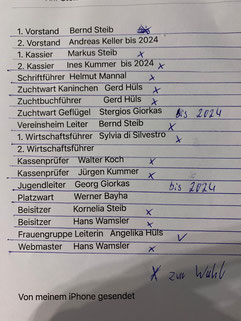 1. Vorstand Bernd Steib
2. Vorstand Andreas Keller bis 2024
1. Kassier Markus Steib x
2. Kassier Ines Kummer bis 2024 x
Schriftführer Helmut Mannal x
Zuchtwart Kaninchen Gerd Hüls x
Zuchtbuchführer Gerd Hüls x
Zuchtwart Geflügel Stergios Giorkas bis 2024
Vereinsheim Leiter Bernd Steib x
1. Wirtschaftsführer Sylvia di Silvestro x
2. Wirtschaftsführer
Kassenprüfer Walter Koch x
Kassenprüfer Jürgen Kummer x
Jugendleiter Georg Giorkas bis 2024
Platzwart Werner Bayha
Beisitzer Kornelia Steib x
Beisitzer Hans Wamsler x
Frauengruppe Leiterin Angelika Hüls ✓
Webmaster Hans Wamsler x
x zur Wahl
Von meinem iPhone gesendet